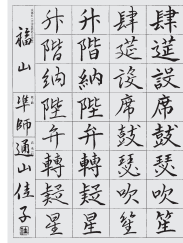 肆筵設席鼓瑟吹笙
肆筵設席鼓瑟吹笙
升階納陛弁轉疑星
升階納陛弁轉疑星
福山 準師 通山佳子